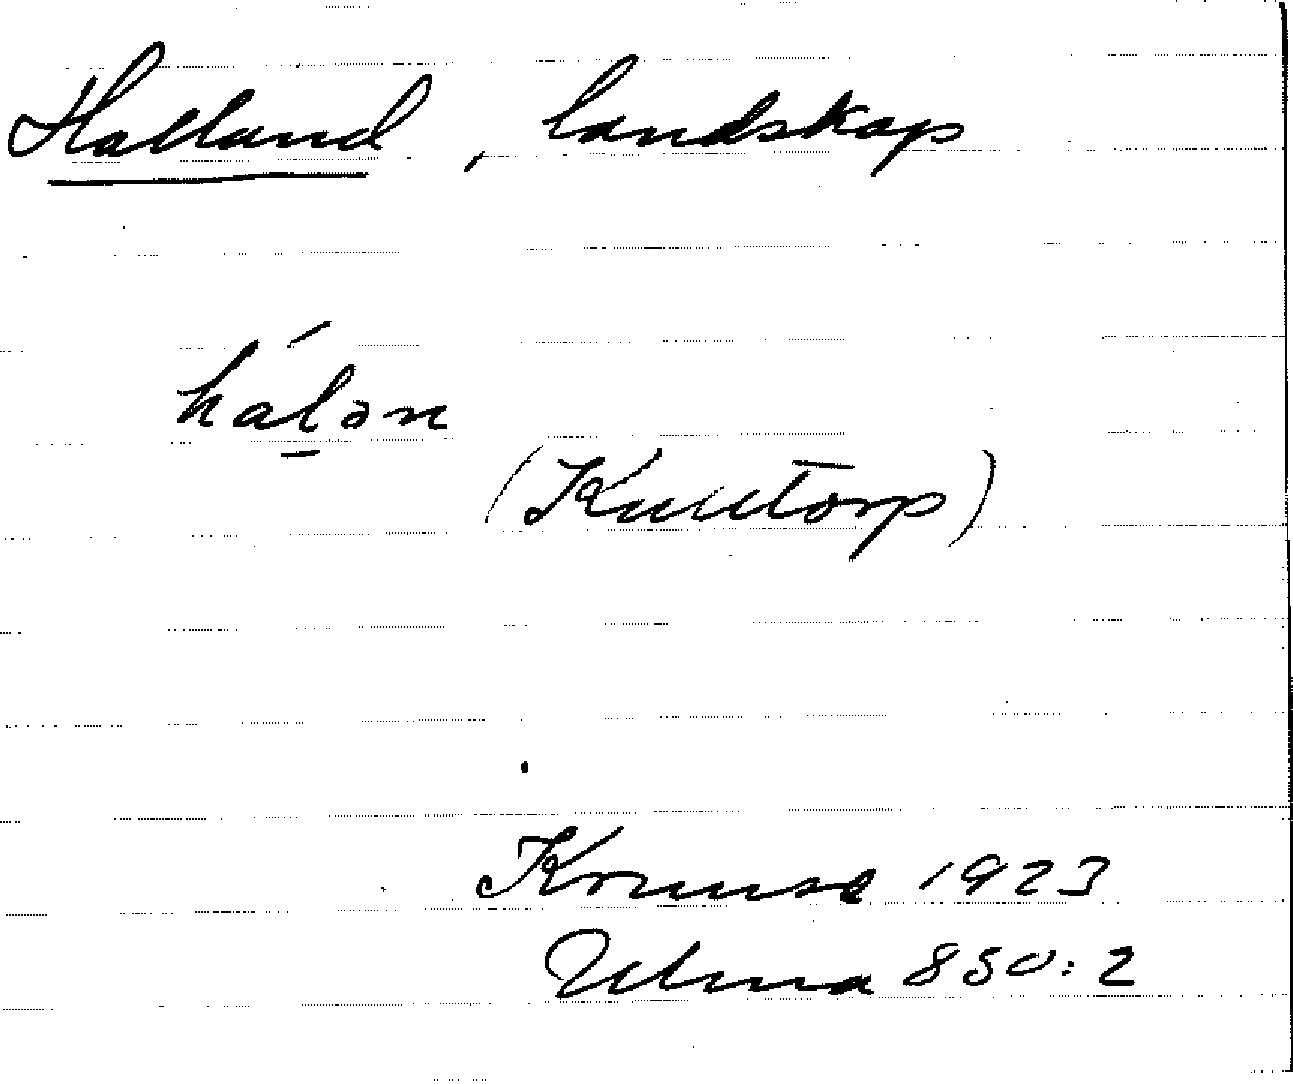 Halland, landskap
hál̠ən
(Kulltorp)
Kruuse 1923
Ulma 850:2